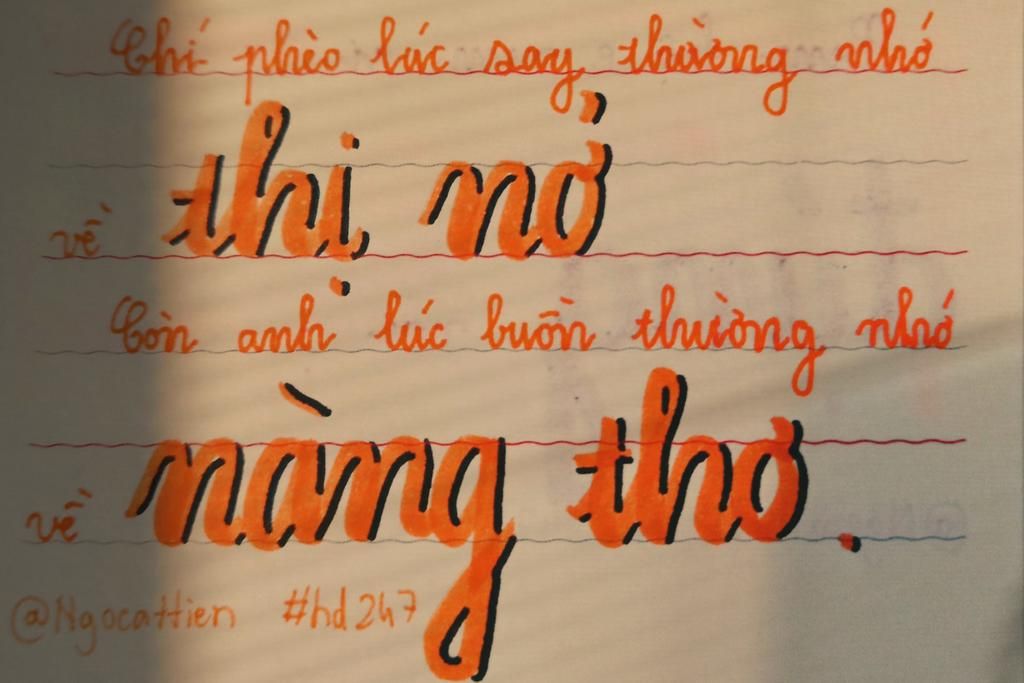 Chí phèo lúc say thường nhớ
về thị nở
Còn anh lúc buồn thường nhớ
về nàng thơ.
@Ngocattien #hd247